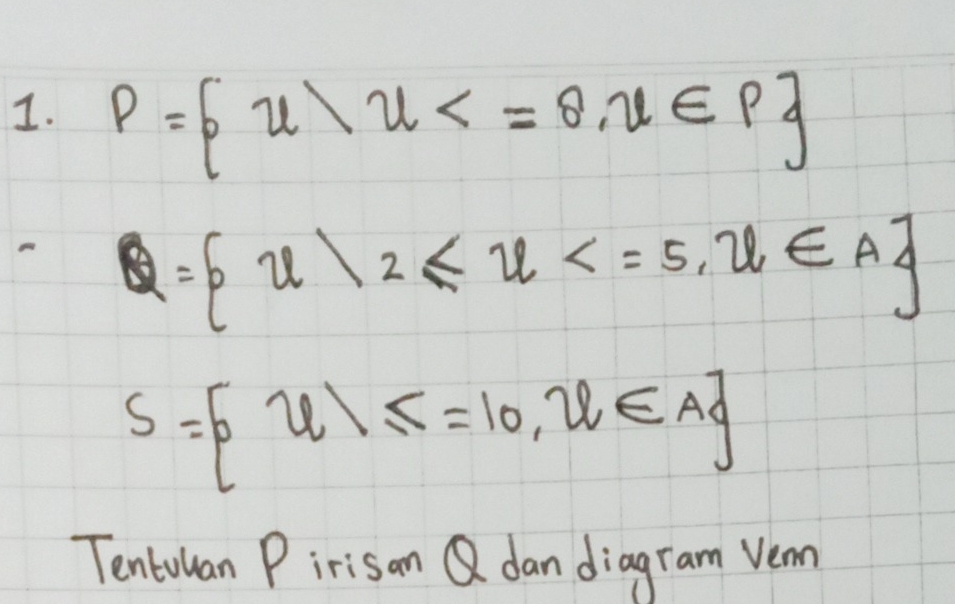 1. P = { u \ u < = 8, u ∈ P }
- Q = { u \ 2 ≤ u < = 5, u ∈ A }
S = { u \ ≤ = 10, u ∈ A }
Tentukan P irisan Q dan diagram Venn